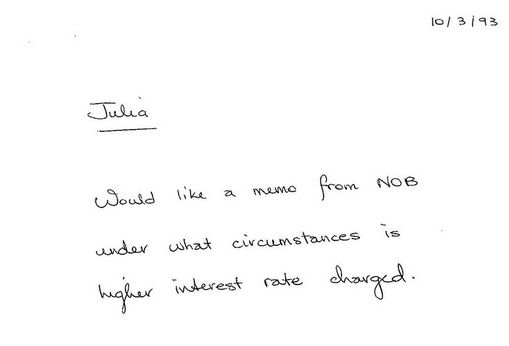 10/3/93
Julia
Would like a memo from NOB
under what circumstances is
higher interest rate charged.